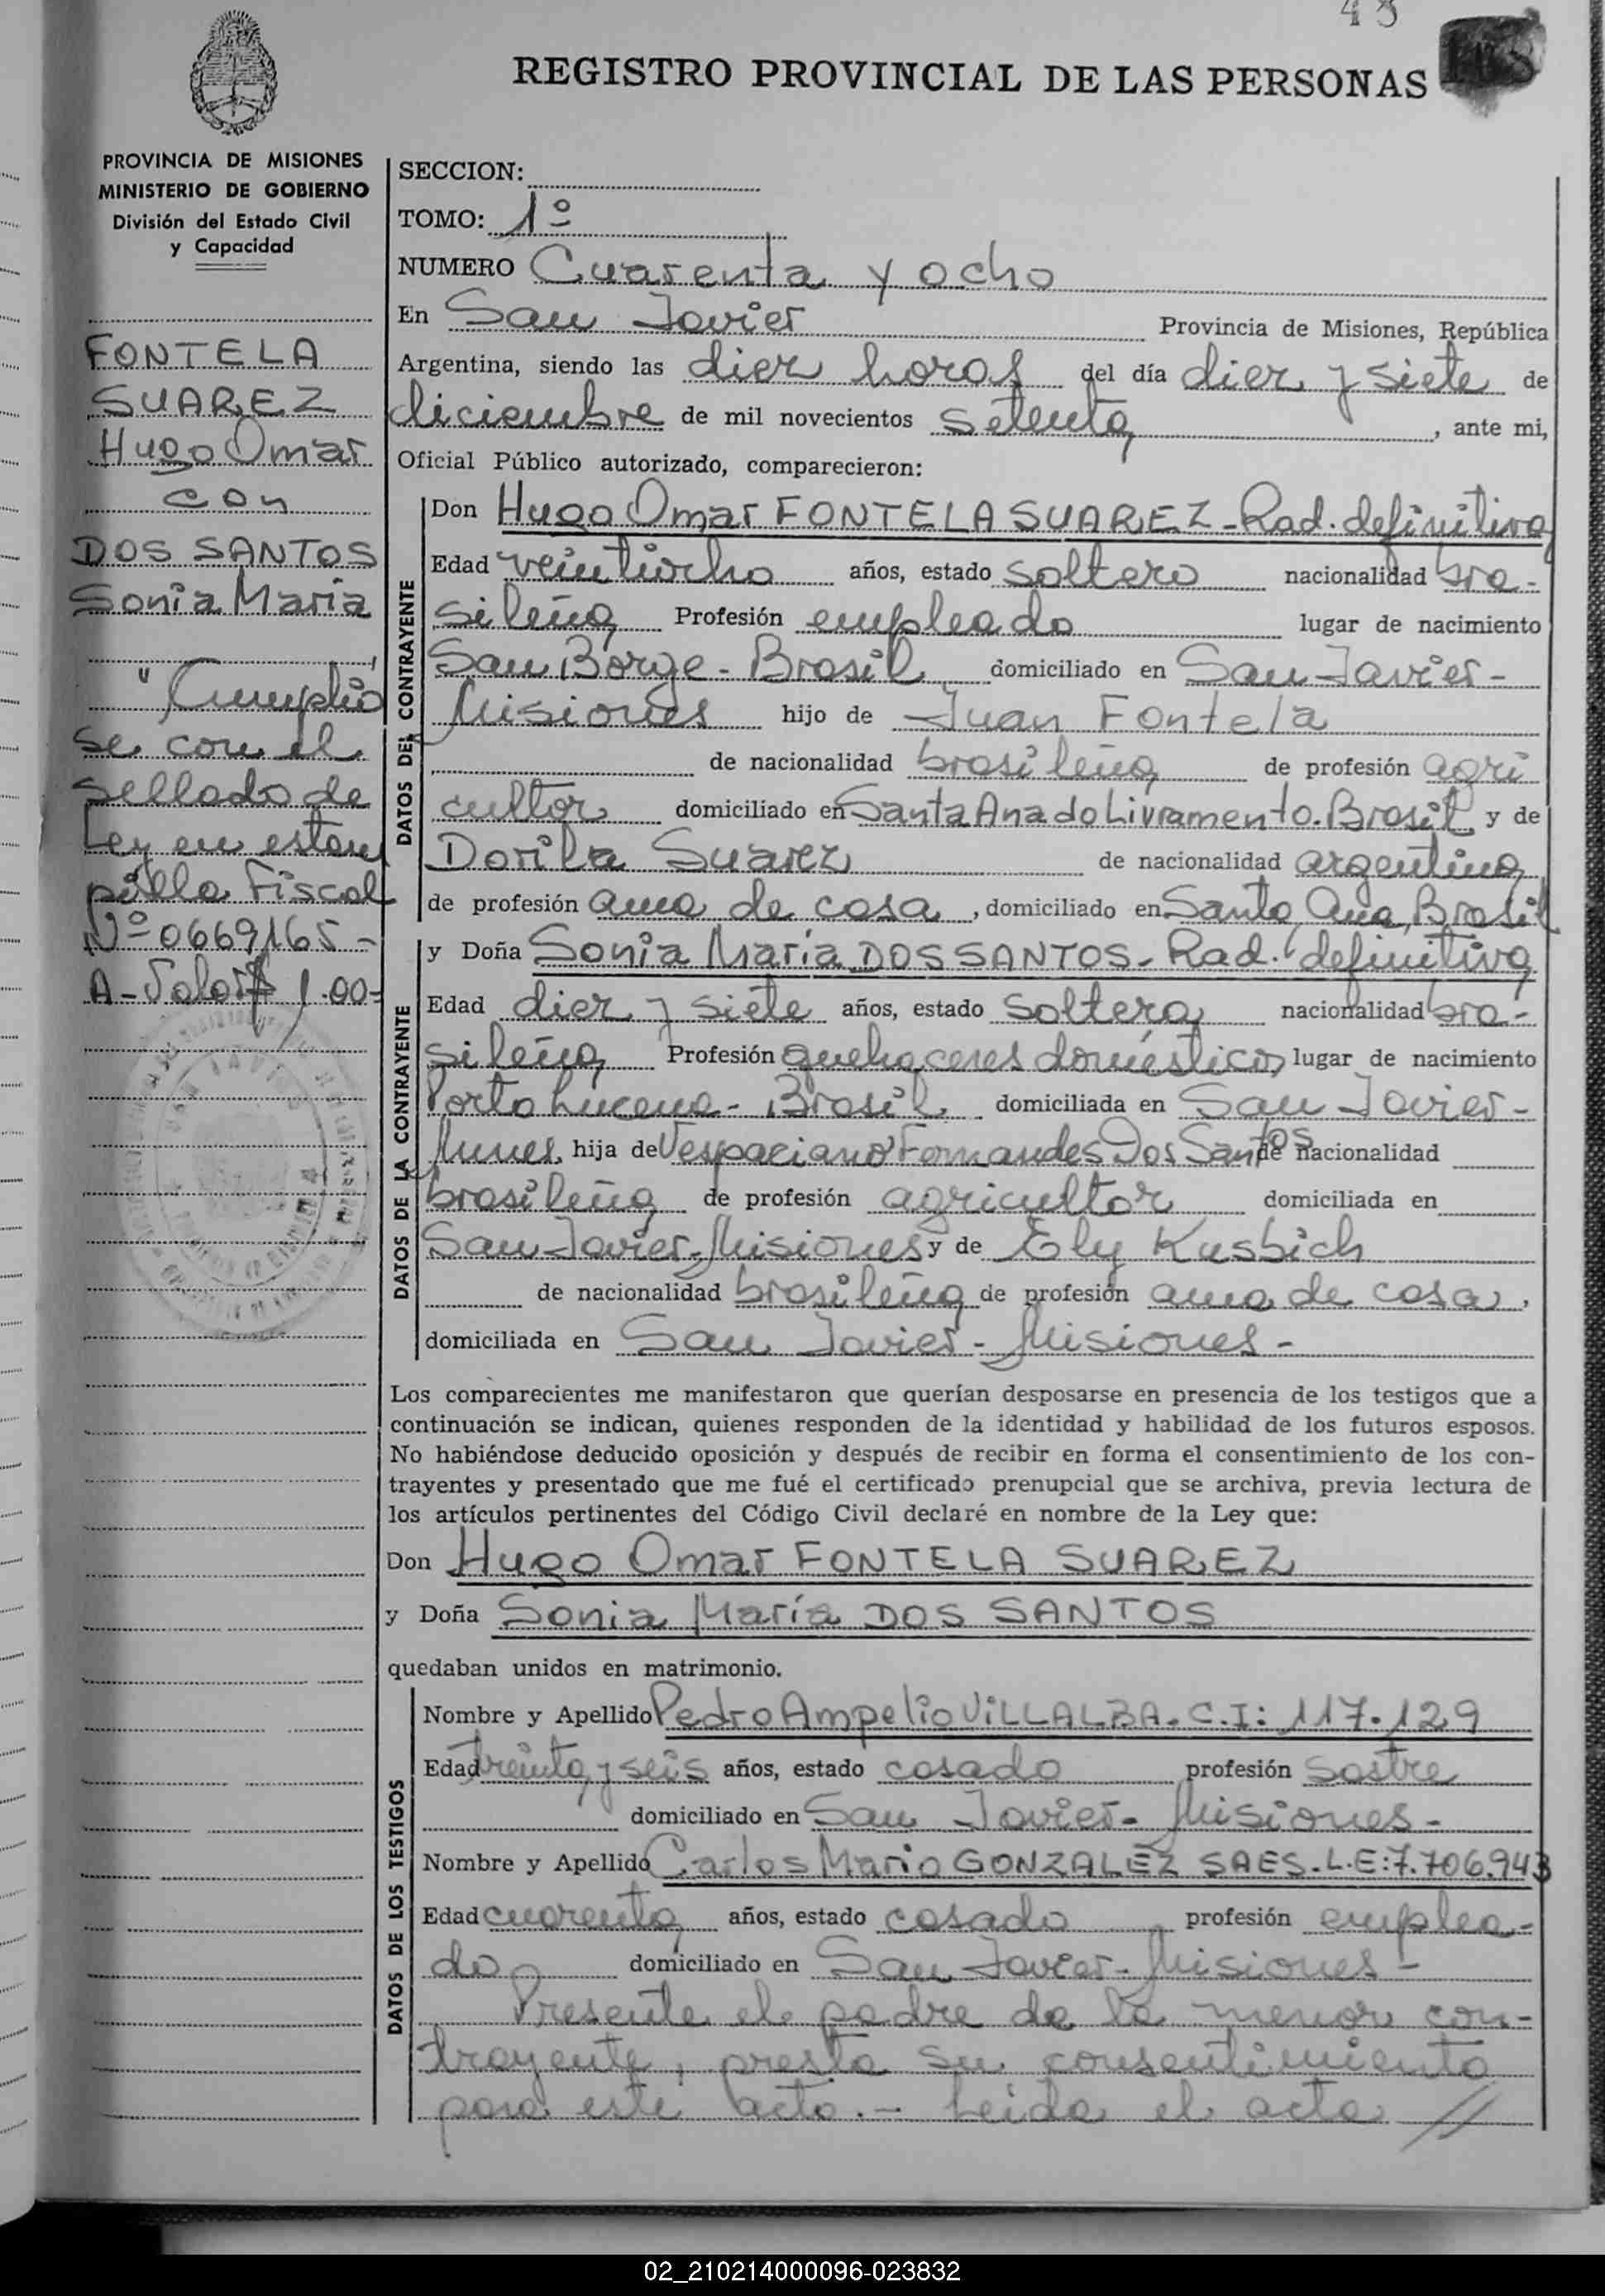 48
REGISTRO PROVINCIAL DE LAS PERSONAS
PROVINCIA DE MISIONES
MINISTERIO DE GOBIERNO
División del Estado Civil
y Capacidad
FONTELA
SUAREZ
Hugo Omar
con
DOS SANTOS
Sonia Maria
"Cumplió
se con el
sellado de
Ley en estam
pilla Fiscal
Nº 0669165-
A-Valor $ 1.00-
SECCION:
TOMO: 1º
NUMERO Cuarenta y ocho
En San Javier Provincia de Misiones, República
Argentina, siendo las diez horas del día diez y siete de
diciembre de mil novecientos setenta, ante mi,
Oficial Público autorizado, comparecieron:
DATOS DEL CONTRAYENTE
Don Hugo Omar FONTELA SUAREZ-Rad. definitiva
Edad veintiocho años, estado soltero nacionalidad bra-
sileña Profesión empleado lugar de nacimiento
San Borge-Brasil domiciliado en San Javier-
Misiones hijo de Juan Fontela
de nacionalidad brasileña de profesión agri
cultor domiciliado en Santa Ana do Livramento.Brasil y de
Dorila Suarez de nacionalidad argentina
de profesión ama de casa, domiciliado en Santa Ana, Brasil
DATOS DE LA CONTRAYENTE
y Doña Sonia María DOS SANTOS-Rad. definitiva
Edad diez y siete años, estado soltera nacionalidad bra-
sileña Profesión quehaceres domésticos lugar de nacimiento
Porto Lucena-Brasil domiciliada en San Javier-
Mnes. hija de Vespaciano Fernandes Dos Santos de nacionalidad
brasileña de profesión agricultor domiciliada en
San Javier-Misiones y de Ely Kusbich
de nacionalidad brasileña de profesión ama de casa,
domiciliada en San Javier-Misiones-
Los comparecientes me manifestaron que querían desposarse en presencia de los testigos que a
continuación se indican, quienes responden de la identidad y habilidad de los futuros esposos.
No habiéndose deducido oposición y después de recibir en forma el consentimiento de los con-
trayentes y presentado que me fué el certificado prenupcial que se archiva, previa lectura de
los artículos pertinentes del Código Civil declaré en nombre de la Ley que:
Don Hugo Omar FONTELA SUAREZ
y Doña Sonia María DOS SANTOS
quedaban unidos en matrimonio.
DATOS DE LOS TESTIGOS
Nombre y Apellido Pedro Ampelio VILLALBA.C.I: 117.129
Edad treinta y seis años, estado casado profesión sastre
domiciliado en San Javier-Misiones-
Nombre y Apellido Carlos Mario GONZALEZ SAES.L.E:7.706.943
Edad cuarenta años, estado casado profesión emplea-
do domiciliado en San Javier-Misiones-
Presente el padre de la menor con-
trayente, presta su consentimiento
para este acto.- Leida el acta //
02_210214000096-023832